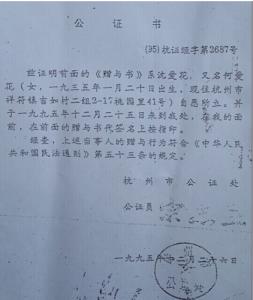 公证书
(95)杭证经字第2687号
兹证明前面的《赠与书》系沈爱花，又名何爱
花（女，一九三五年一月二十日出生，现住杭州市
祥符镇吉如村二组2-17桃园里41号）自愿所立。并
于一九九五年十二月二十五日来到我处，在我的面
前，在前面的赠与书代签名上按指印。
经查，上述当事人的赠与行为符合《中华人民
共和国民法通则》第五十三条的规定。
杭州市公证处
公证员
一九九五年十二月二十六日